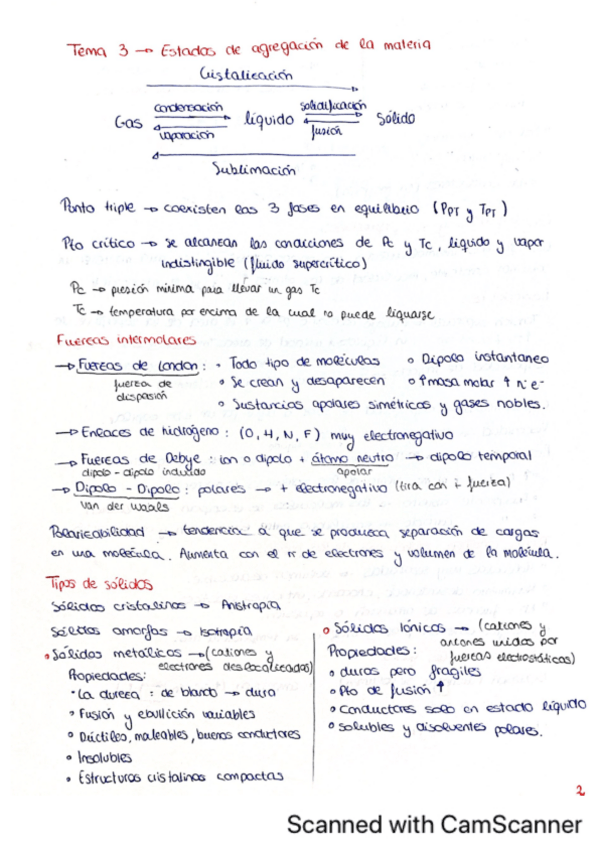 Tema 3 → Estados de agregación de la materia
Cristalización
Gas condensación líquido solidificación sólido
vaporación fusión
Sublimación
Punto triple → coexisten las 3 fases en equilibrio (PPT y TPT)
Pto crítico → se alcanzan las condiciones de Pc y Tc, líquido y vapor
indistingible (fluido supercrítico)
Pc → presión mínima para llevar un gas Tc
Tc → temperatura por encima de la cual no puede liquarse
Fuerzas intermolares
→ Fuerzas de London: • Todo tipo de moléculas ◦ Dipolo instantaneo
fuerza de dispasión
◦ Se crean y desaparecen ◦ ↑ masa molar ↑ nº e-
◦ Sustancias apolares simétricas y gases nobles.
→ Enlaces de hidrógeno: (O, H, N, F) muy electronegativo
→ Fuerzas de Debye: ion o dipolo + átomo neutro → dipolo temporal
dipolo - dipolo inducido apolar
→ Dipolo - Dipolo: polares → + electronegativo (tira con + fuerza)
Van der Waals
Polarizabilidad → tendencia a que se produzca separación de cargas
en una molécula. Aumenta con el nº de electrones y volumen de la molécula.
Tipos de sólidos
Sólidos cristalinos → Anistropía
Sólidos amorfos → Isotropía
• Sólidos metálicos → (cationes y
electrones deslocalizados)
Propiedades:
• La dureza: de blando → dura
• Fusión y ebullición variables
• Dúctiles, maleables, buenos conductores
• Insolubles
• Estructuras cristalinas compactas
◦ Sólidos Iónicos → (cationes y
aniones unidos por
Propiedades: fuerzas electrostáticas)
◦ duros pero fragiles
◦ Pto de fusión ↑
◦ conductores solo en estado líquido
◦ solubles y disolventes polares.
2
Scanned with CamScanner